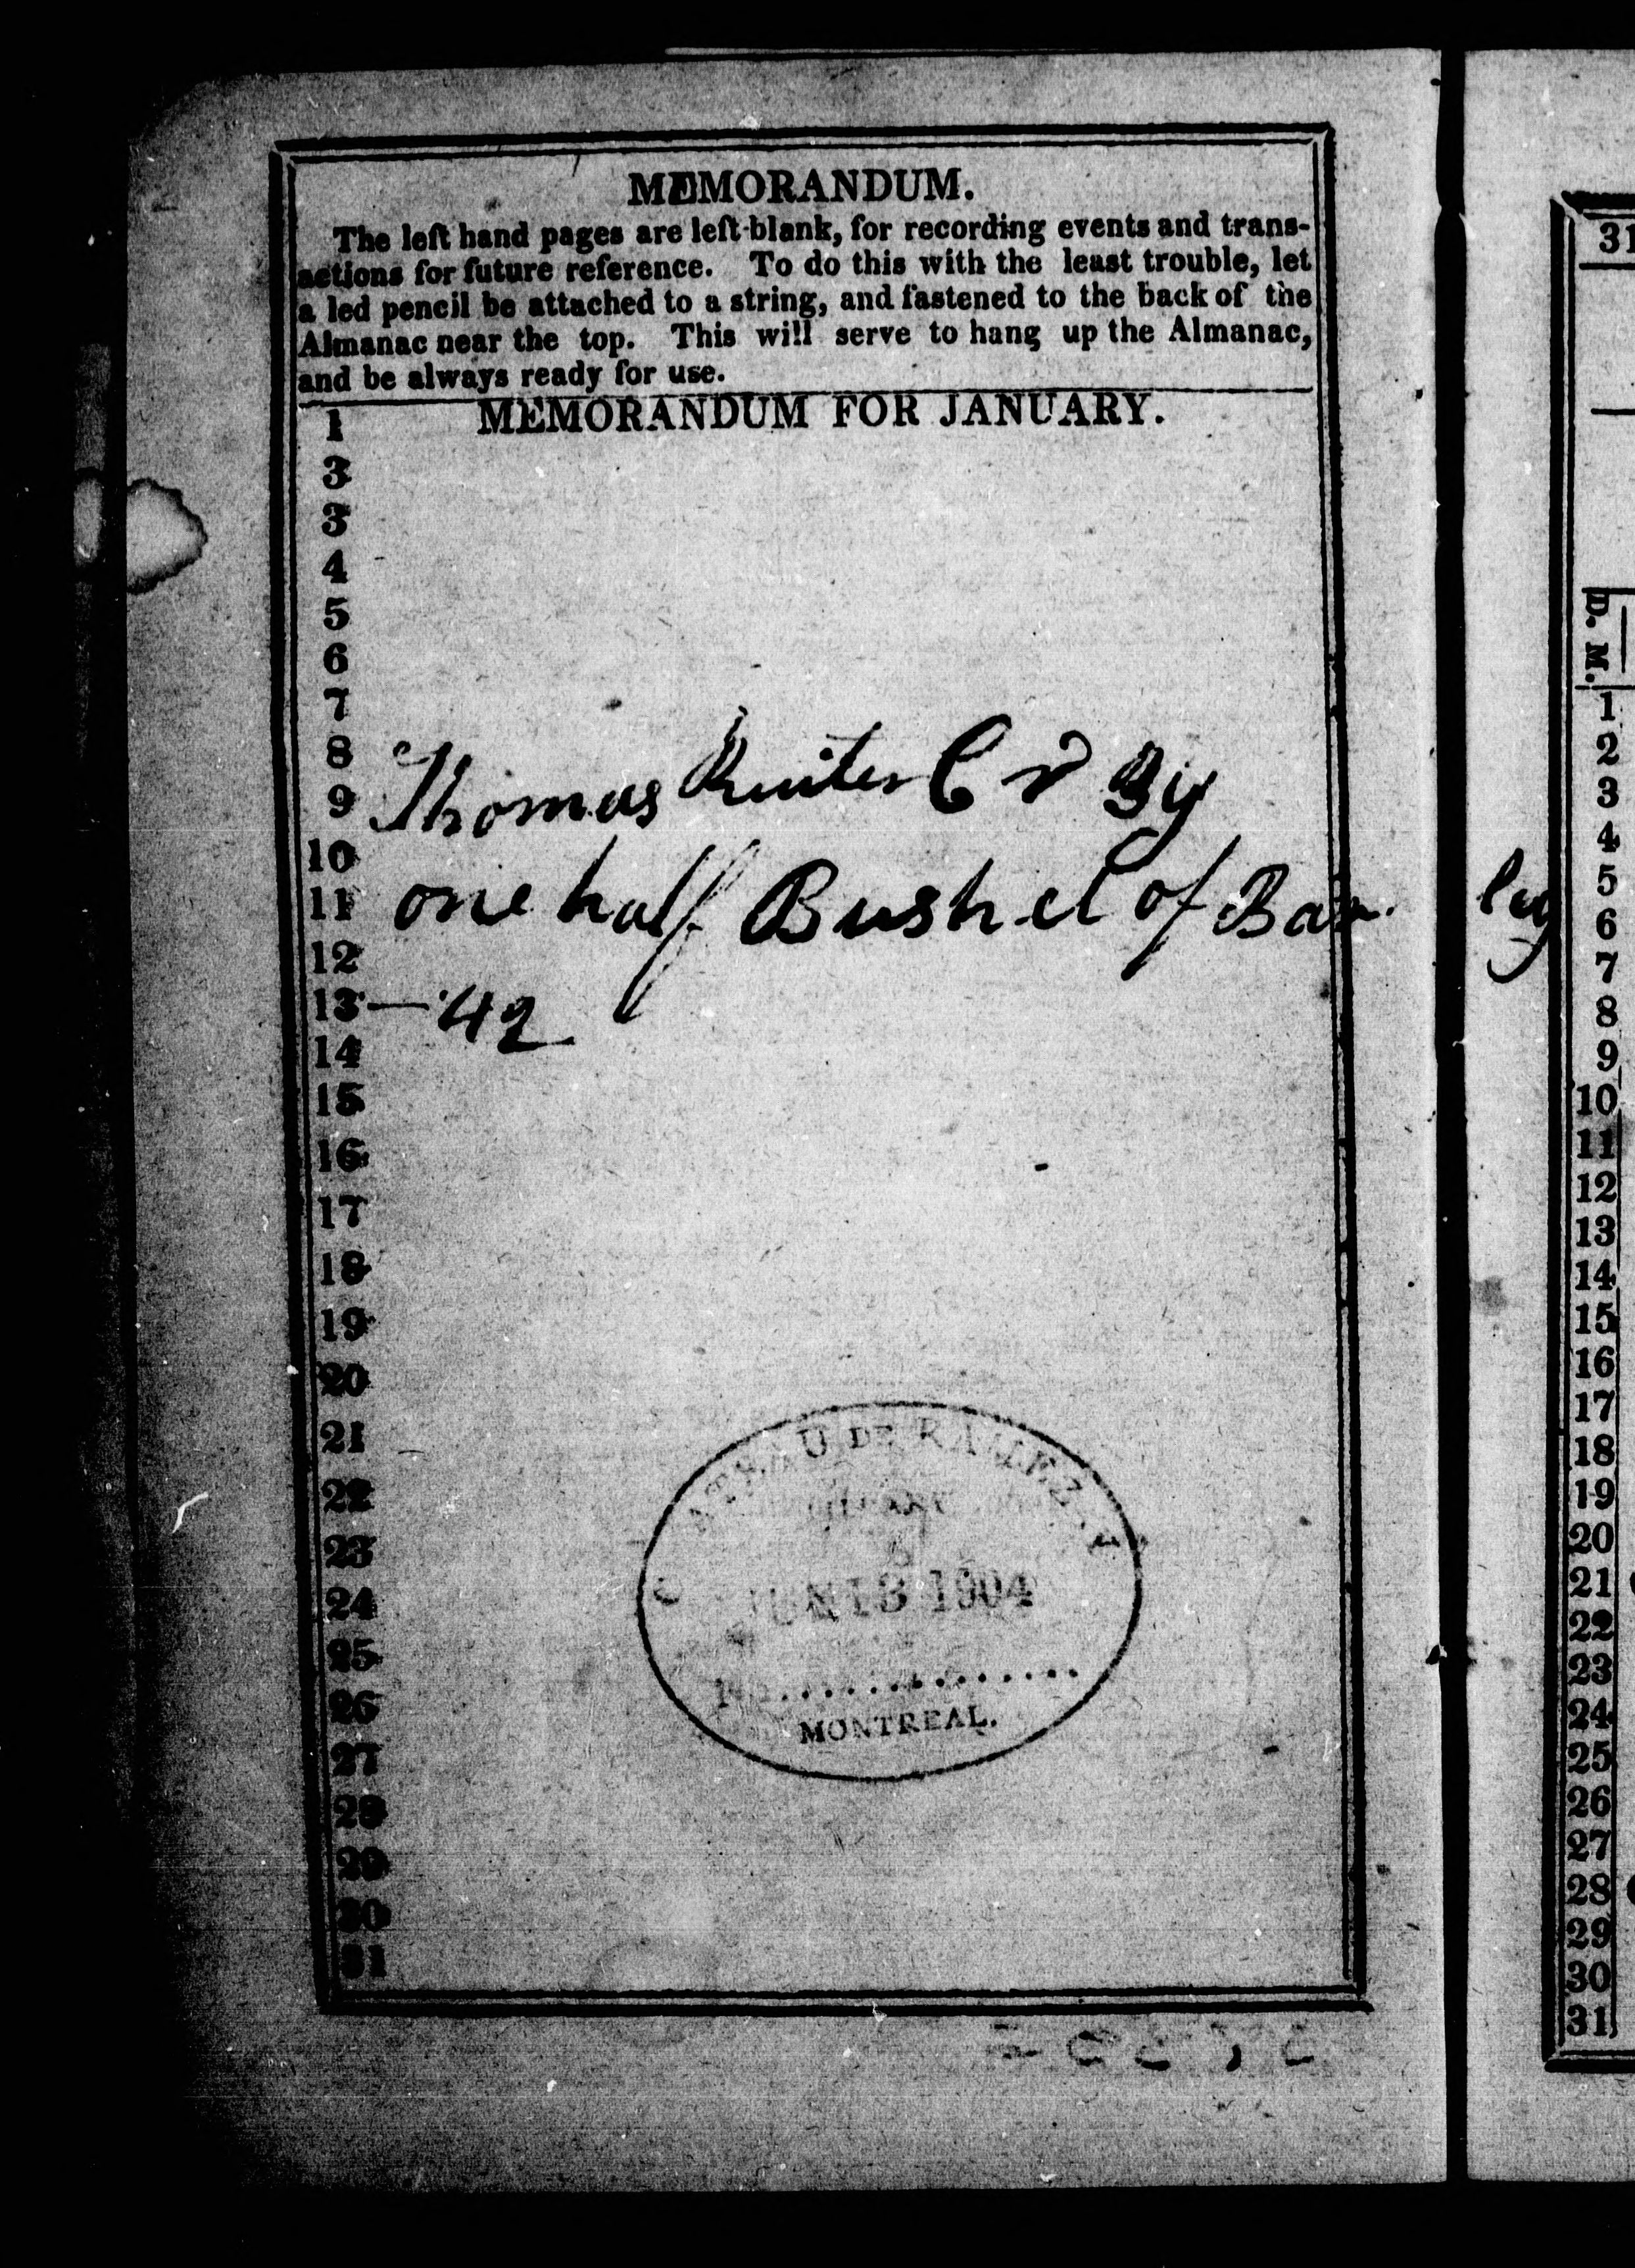 MEMORANDUM.
The left hand pages are left blank, for recording events and trans-
actions for future reference. To do this with the least trouble, let
a led pencil be attached to a string, and fastened to the back of the
Almanac near the top. This will serve to hang up the Almanac,
and be always ready for use.
MEMORANDUM FOR JANUARY.
1
3
3
4
5
6
7
8
9 Thomas Ruiter Cr By
10
11 one half Bushel of Bar ley
12
13 — 42
14
15
16
17
18
19
20
21
22
23
24
25
26
27
28
29
30
31
CHATEAU DE RAMEZAY
LIBRARY
JUN 13 1904
No...............
MONTREAL.
31
D. M.
1
2
3
4
5
6
7
8
9
10
11
12
13
14
15
16
17
18
19
20
21
22
23
24
25
26
27
28
29
30
31